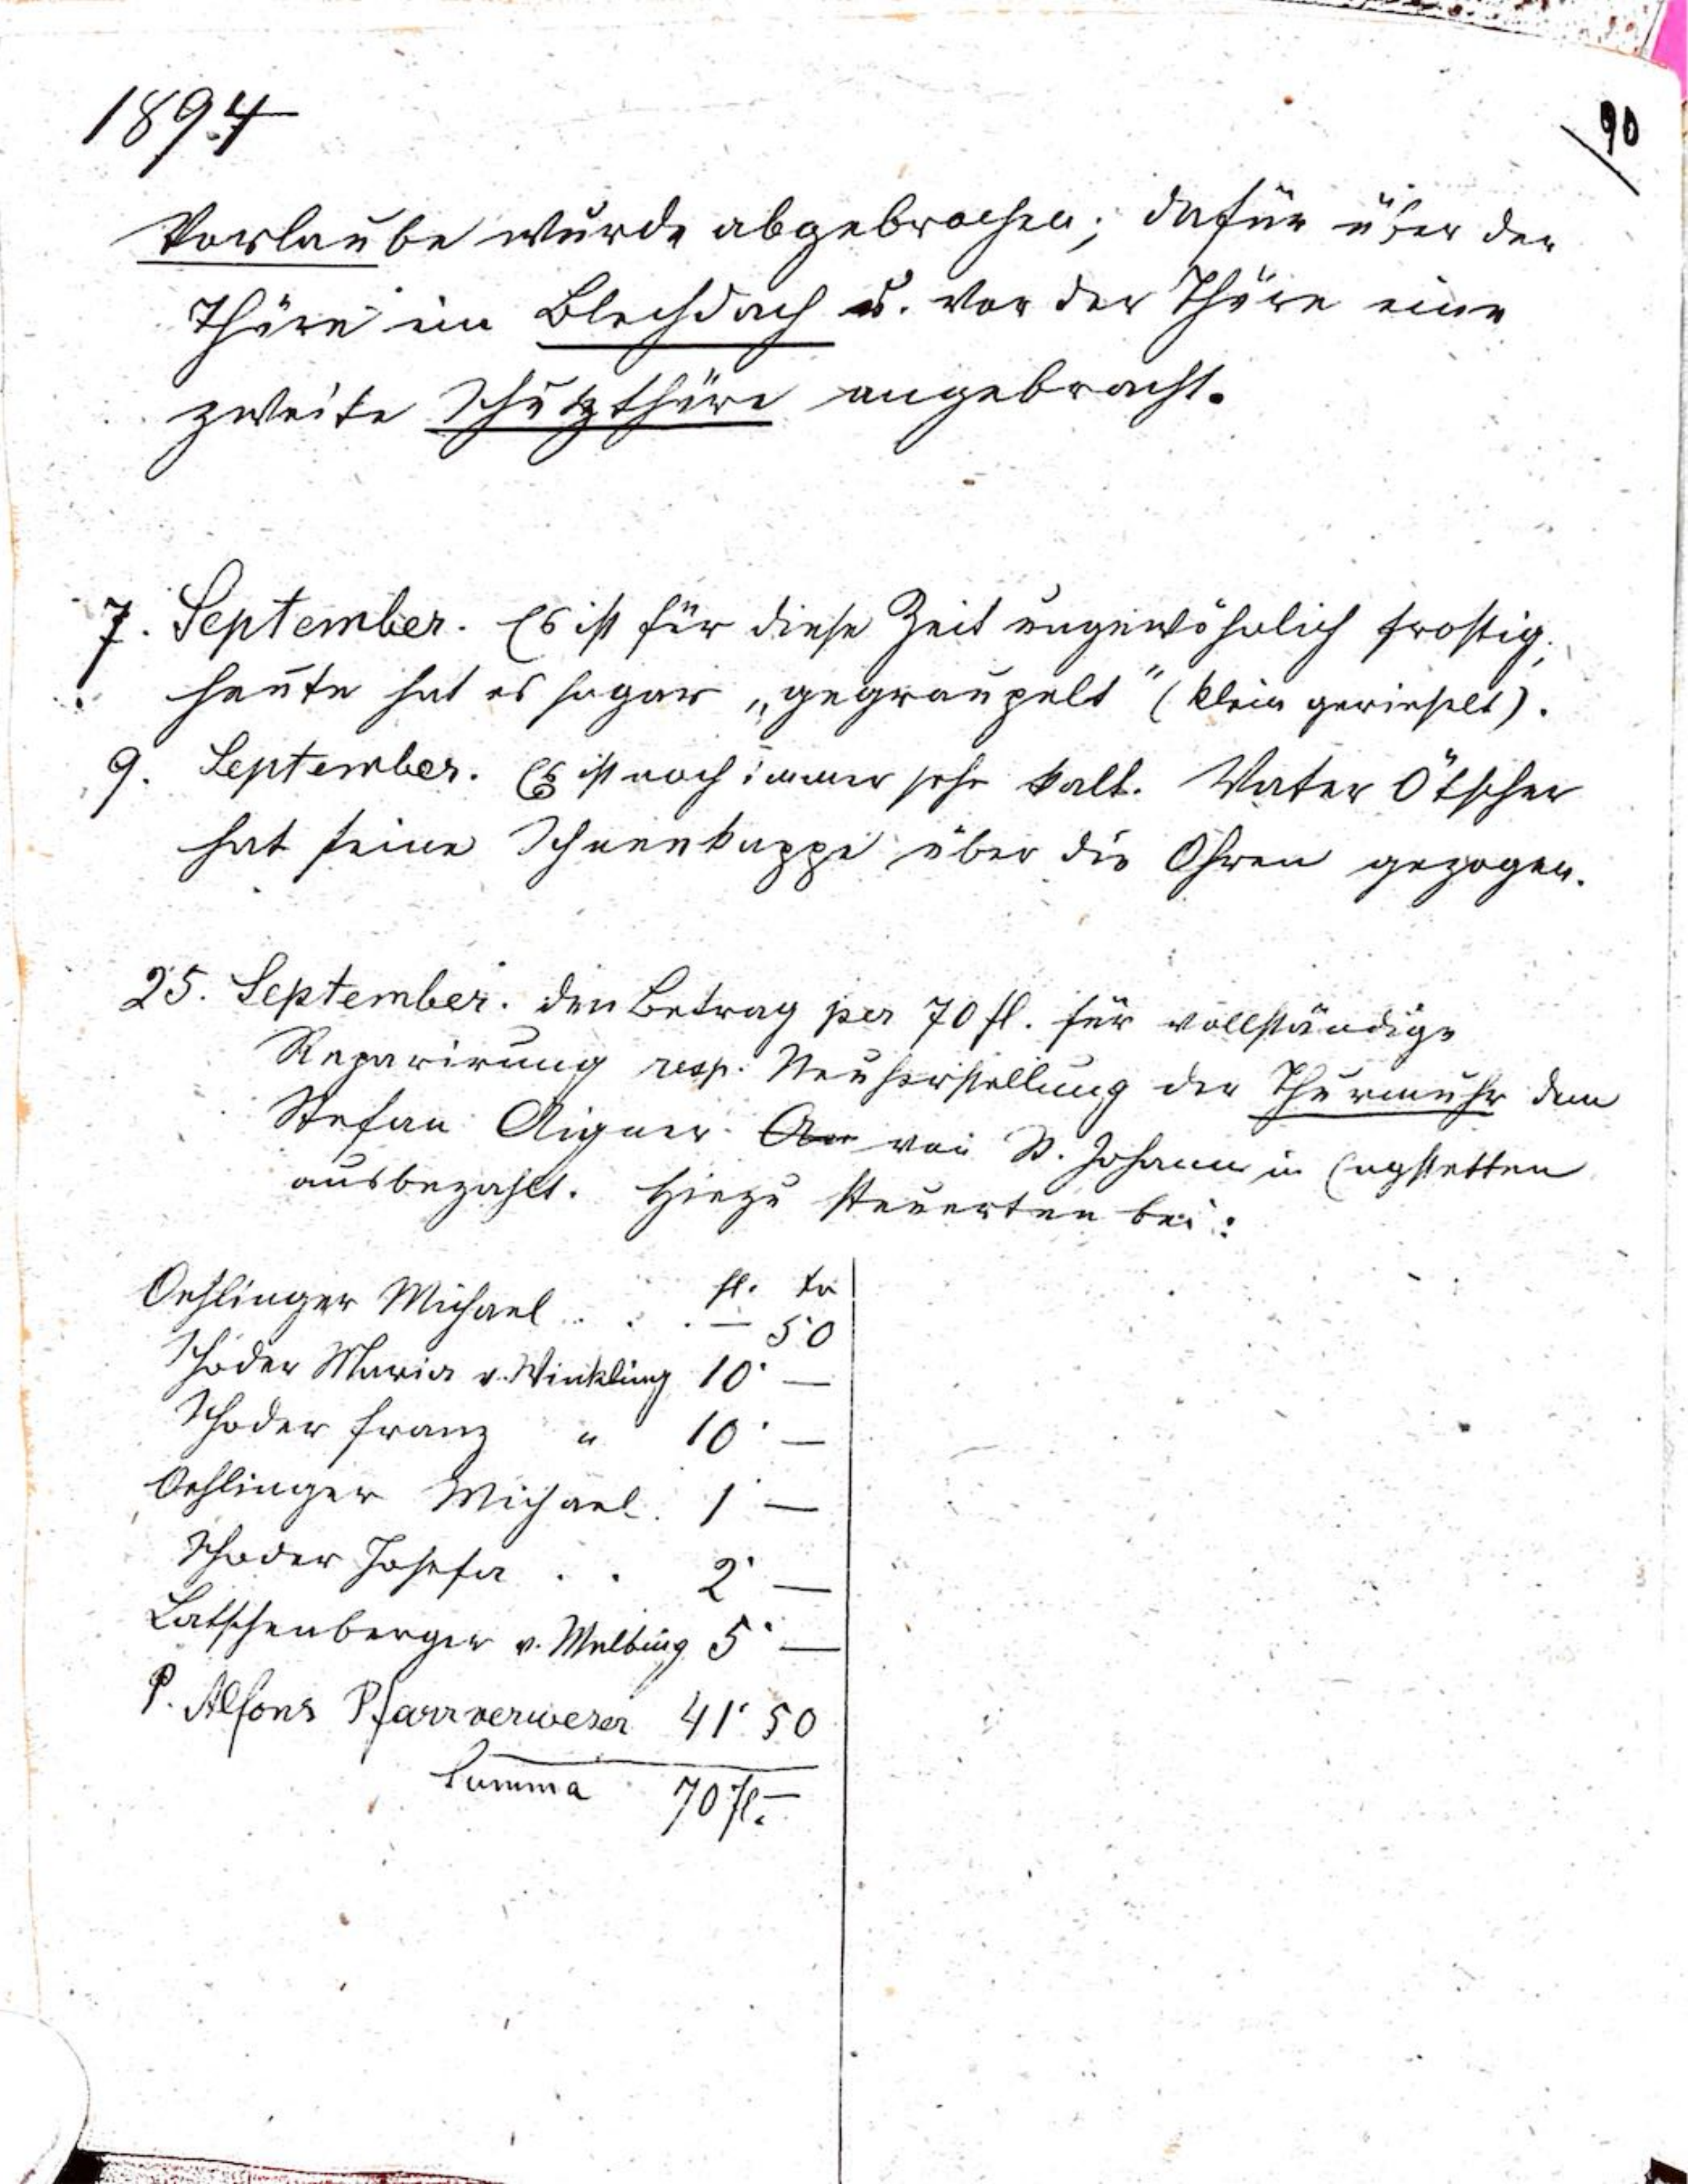 1894
90
Vorlaube wurde abgebrochen; dafür über der
Thüre ein Blechdach u. vor der Thüre eine
zweite Schutzthüre angebracht.
7. September. Es ist für diese Zeit ungewöhnlich frostig;
heute hat es sogar „gegraupelt" (klein gerieselt).
9. September. Es ist noch immer sehr kalt. Vater Ötscher
hat seine Schneekappe über die Ohren gezogen.
25. September. den Betrag per 70 fl. für vollständige
Reparirung resp. Neuherstellung der Thurmuhr dem
Stefan Aigner von St. Johann in Engstetten
ausbezahlt. Hiezu steuerten bei:
fl. kr
Oehlinger Michael . . . — 50
Schoder Maria v. Winkling 10 —
Schoder Franz " 10 —
Oehlinger Michael. 1 —
Schoder Josefa . . 2 —
Latschenberger v. 5 —
P. Alfons Pfarrverweser 41 50
Summa 70 fl. —